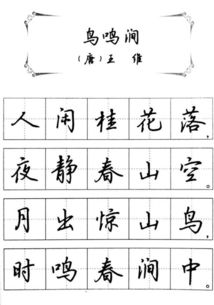 鸟鸣涧
（唐）王 维
人闲桂花落，
夜静春山空。
月出惊山鸟，
时鸣春涧中。